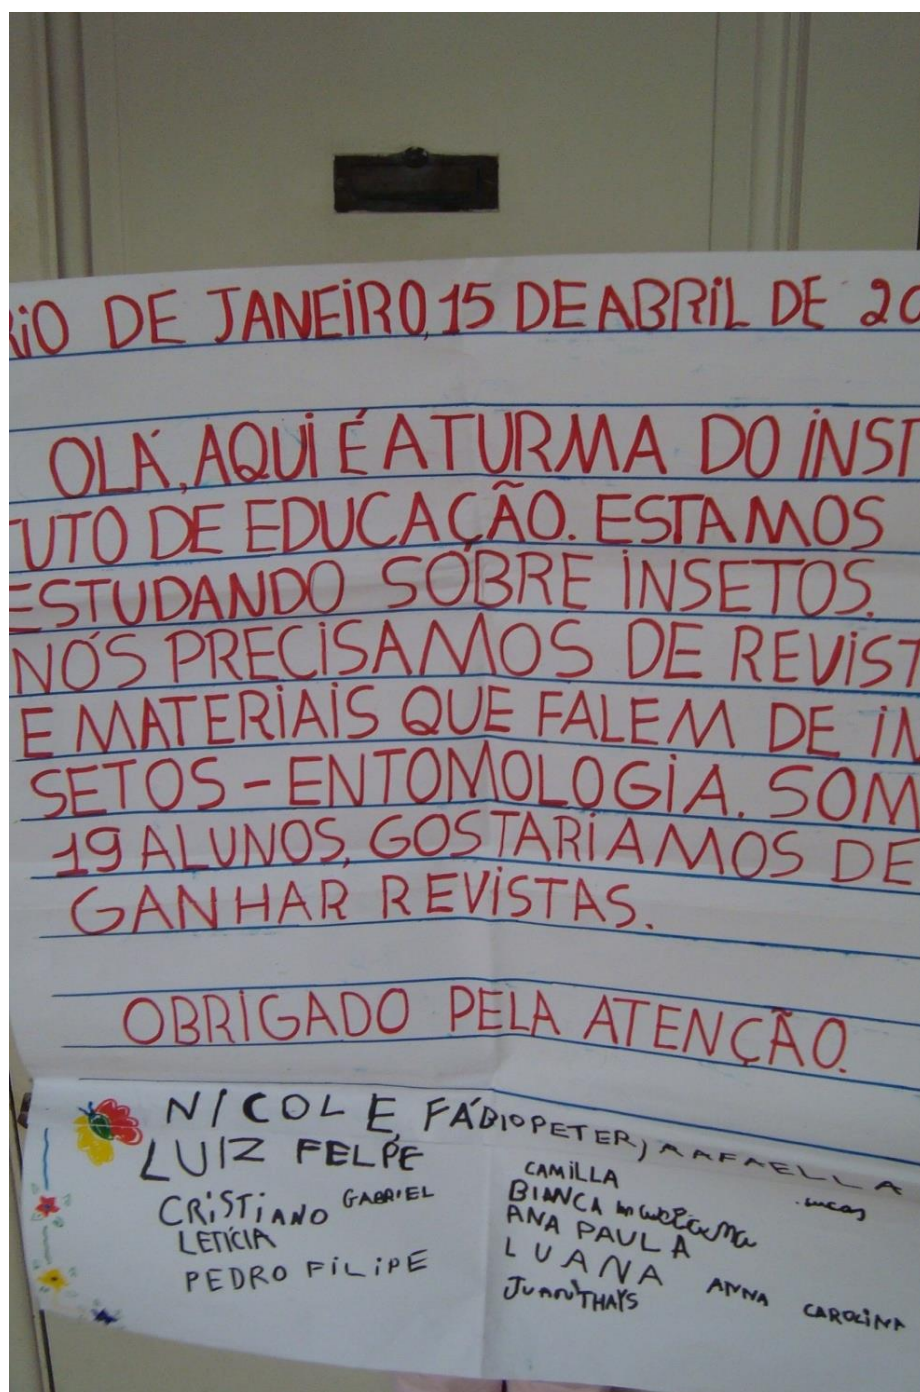 RIO DE JANEIRO, 15 DE ABRIL DE 20
OLÁ, AQUI É A TURMA DO INSTI
TUTO DE EDUCAÇÃO. ESTAMOS
ESTUDANDO SOBRE INSETOS.
NÓS PRECISAMOS DE REVIST
E MATERIAIS QUE FALEM DE IN
SETOS - ENTOMOLOGIA. SOM
19 ALUNOS, GOSTARIAMOS DE
GANHAR REVISTAS.
OBRIGADO PELA ATENÇÃO.
NICOLE FÁBIO PETER RAFAELLA
LUIZ FELPE
CAMILLA LUCAS
CRISTIANO GABRIEL
BIANCA
LETÍCIA
ANA PAULA
PEDRO FILIPE
LUANA ANNA CAROLINA
JUAN THAYS